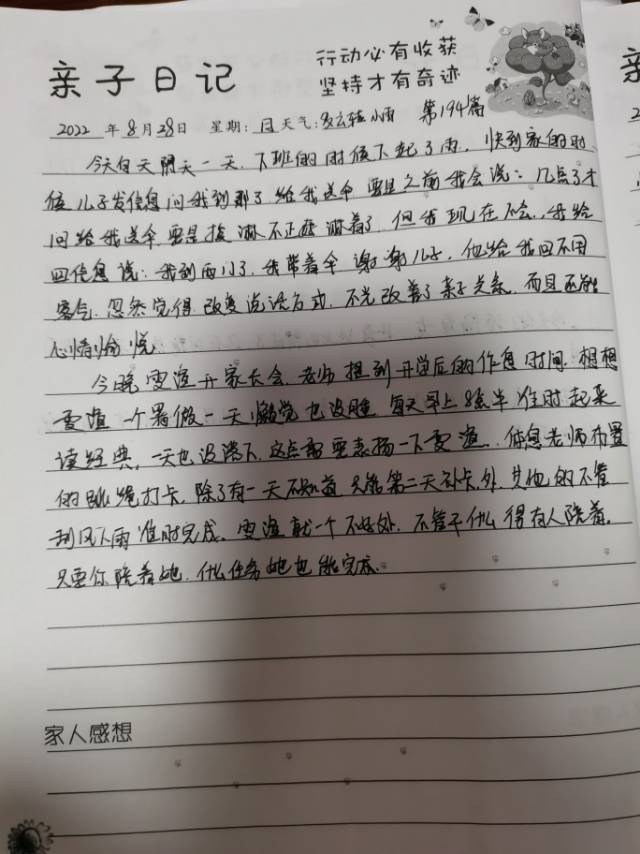 亲子日记
行动必有收获
坚持才有奇迹
2022 年 8 月 28 日 星期: 日 天气: 多云转小雨 第194篇
今天白天阴天一天，下班的时候下起了雨，快到家的时
候儿子发信息问我到那了给我送伞 要是之前我会说：几点了才
问给我送伞 要是挨淋不正 淋着了，但我现在不会，我给
回信息说：我到西门了，我带着伞 谢谢儿子，他给我回不用
客气，忽然觉得 改变说话方式，不光改善了亲子关系，而且还能
心情愉悦
今晚 雯渲开家长会，老师提到开学后的作息时间 想想
雯渲 一个暑假一天懒觉也没睡 每天早上 半准时起来
读经典，一天也没落下，这点都要表扬一下雯渲，体息老师布置
的跳绳打卡，除了有一天不知道 只能第二天补卡外，其他的不管
刮风下雨 准时完成。雯渲就一个不好处，不管干什么得有人陪着，
只要你陪着她，什么任务她也能完成。
家人感想
亲
2